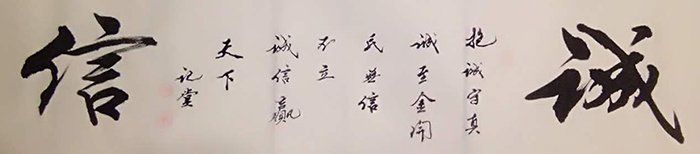 诚
抱诚守真
诚至金開
民無信
不立
诚信赢
天下
记堂
信